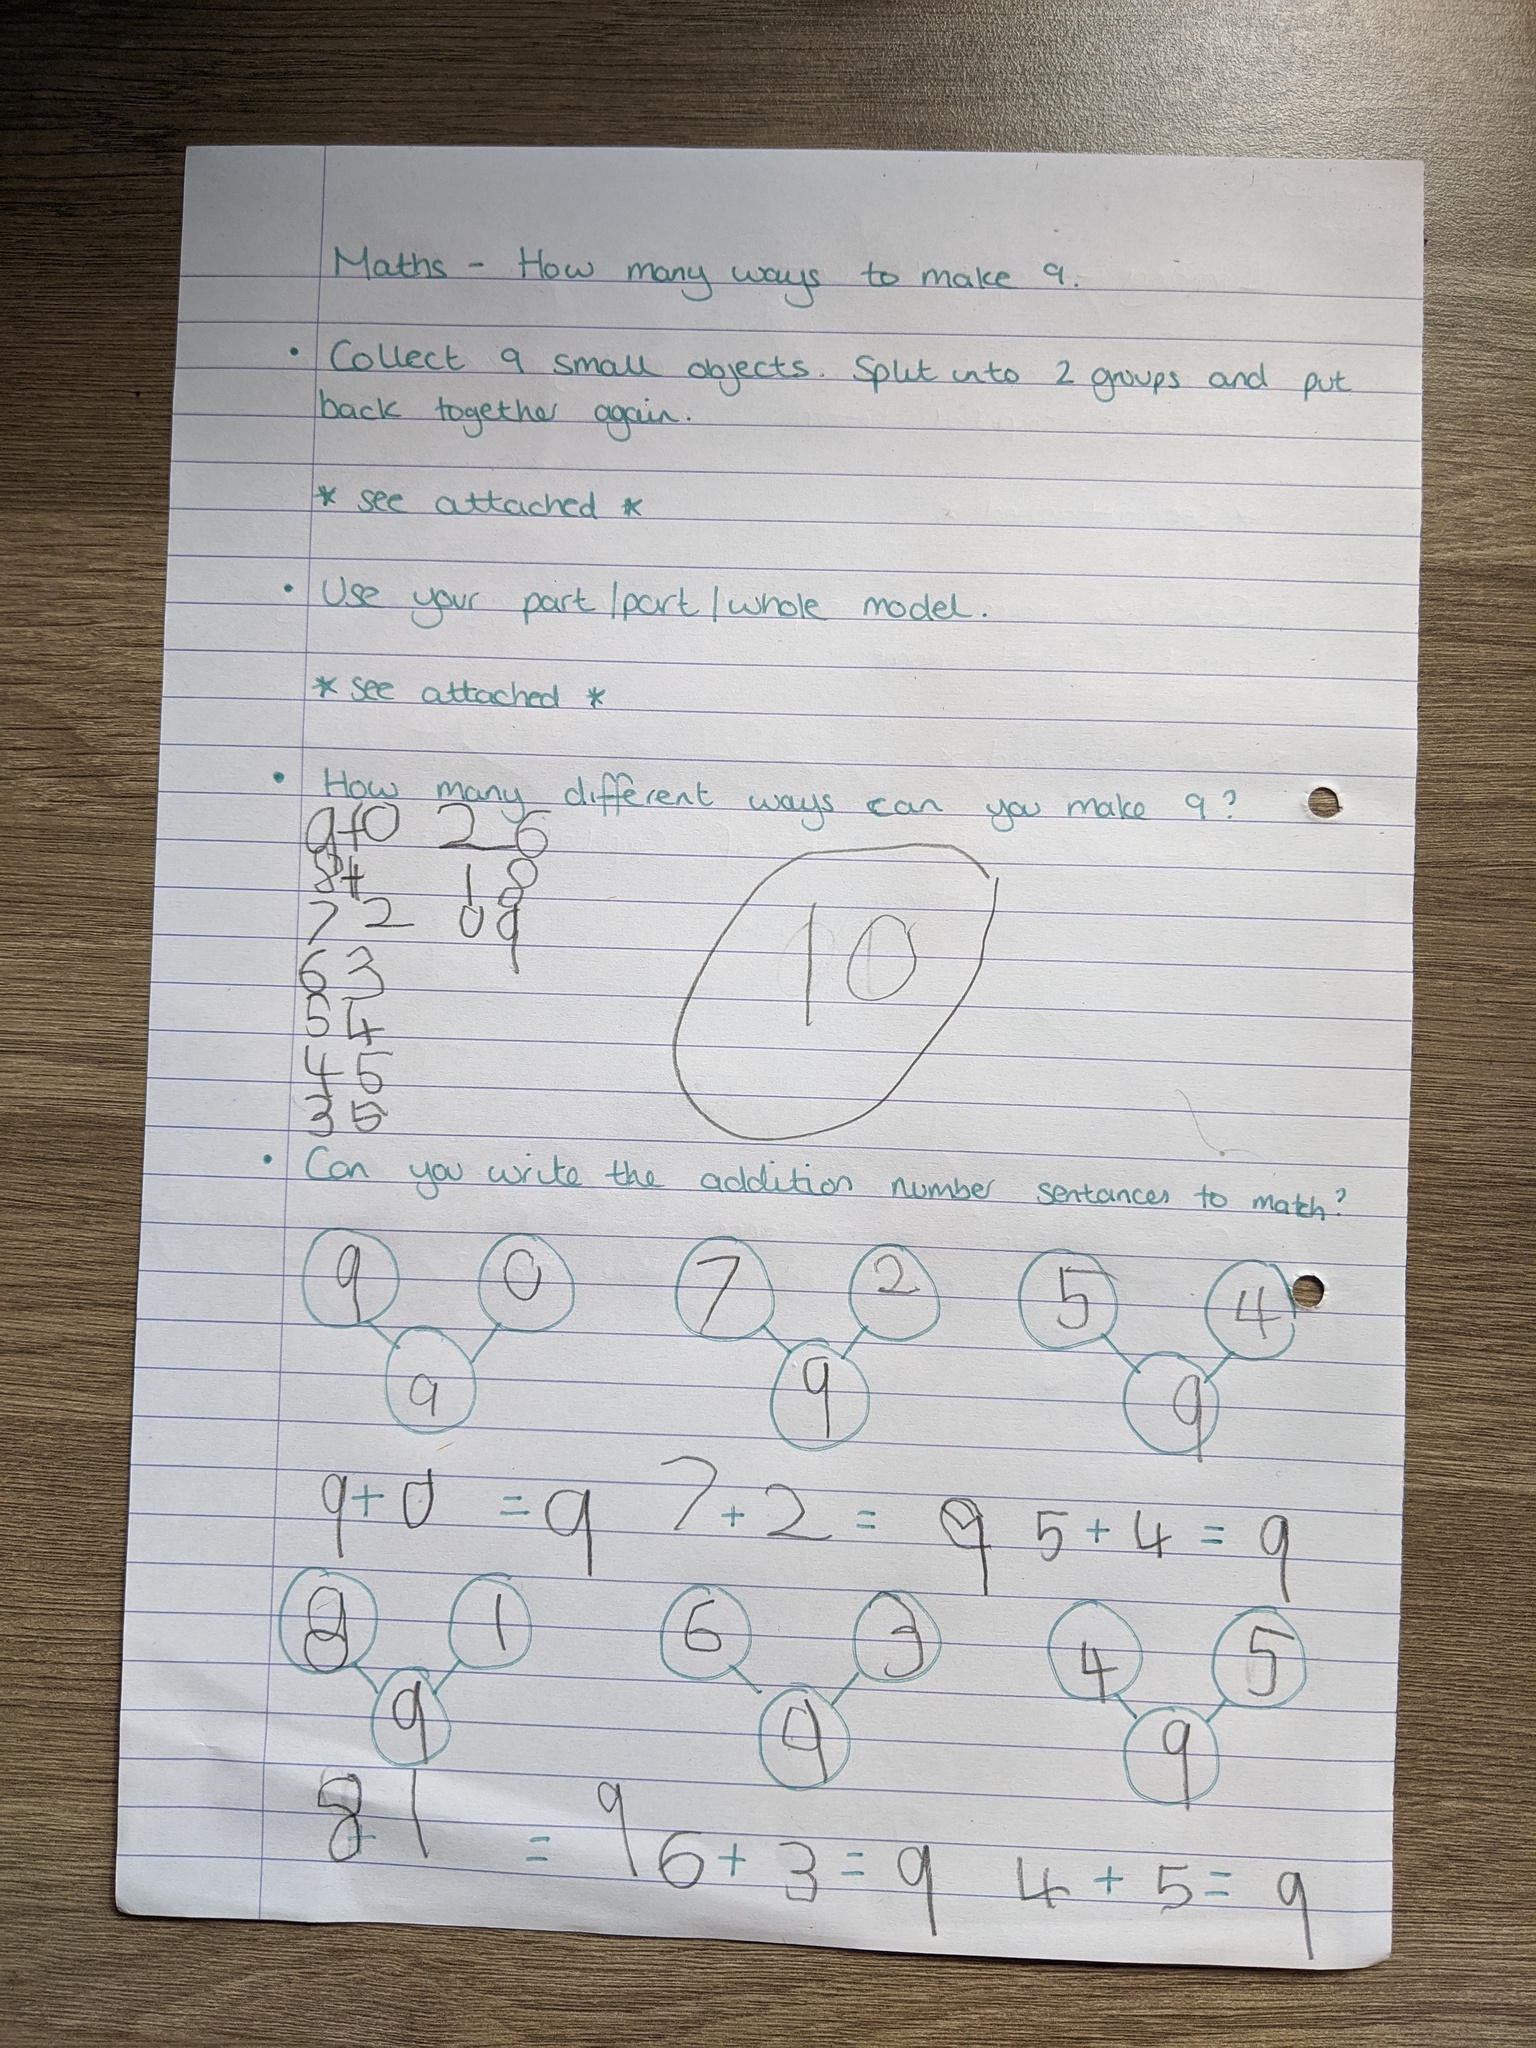 Maths - How many ways to make 9.
• Collect 9 small objects. Split into 2 groups and put
back together again.
* see attached *
• Use your part/part/whole model.
* see attached *
• How many different ways can you make 9?
9+0 2 6
8+ 1 8
7 2 0 9
6 3
5 4
4 5
3 5
10
• Can you write the addition number sentances to match?
9 0 7 2 5 4
9 9 9
9+0 = 9 7+2 = 9 5+4 = 9
8 1 6 3 4 5
9 9 9
8+1 = 9 6+3=9 4+5= 9